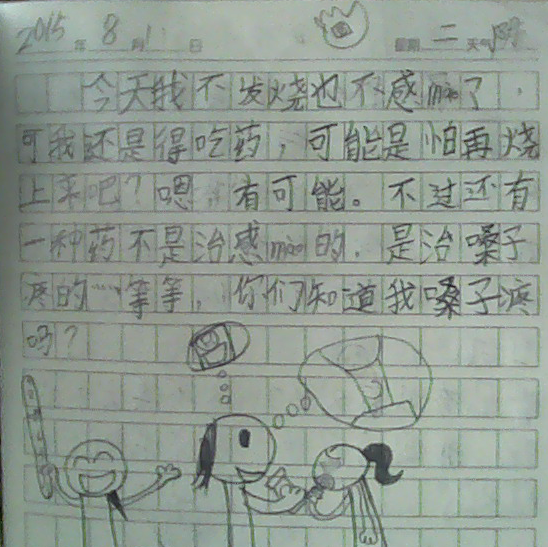 2015年8月1日 星期二 天气阴
今天我不发烧也不感mào了.
可我还是得吃药，可能是怕再烧
上来吧？嗯，有可能。不过还有
一种药不是治感mào的.是治嗓子
疼的……等等，你们知道我嗓子疼
吗？